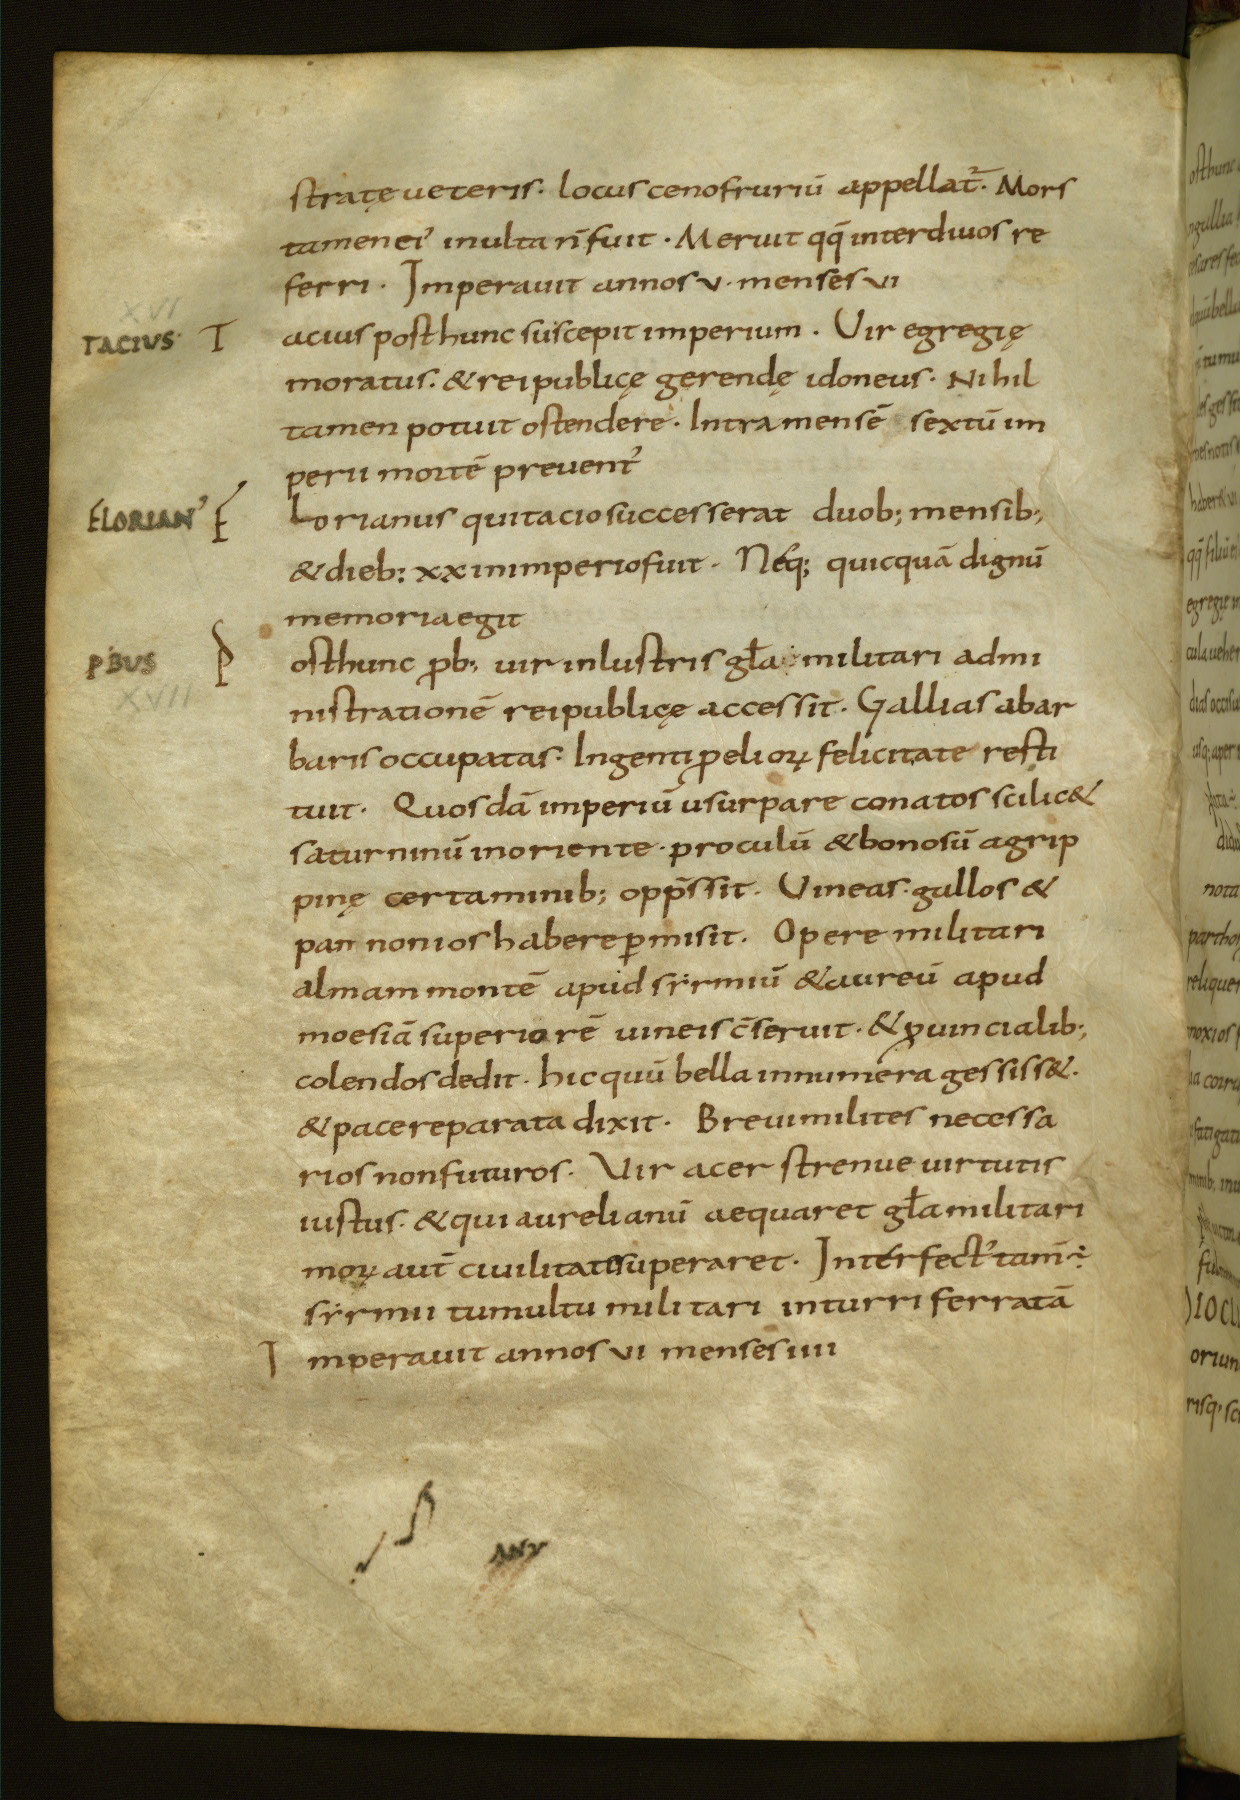 stratę ueteris. locus cenofruriū appellat̄. Mors
tamen ei' inulta n̄ fuit. Meruit qq̄ inter diuos re
ferri. Imperauit annos v. menses vi
XVI
TACIUS T acius post hunc suscepit imperium. Uir egregię
moratus. & reipublicę gerendę idoneus. Nihil
tamen potuit ostendere. Intra mensē sextū im
perii mortē preuent'
FLORIAN' F Lorianus qui tacio successerat duob; mensib;
& dieb; xx in imperio fuit. Neq; quicquā dignū
memoria egit
PBUS P ost hunc ꝓb; uir inlustris gła militari admi
XVII
nistrationē reipublicę accessit. Gallias a bar
baris occupatas. Ingenti p̄elioꝝ felicitate resti
tuit. Quosdā imperiū usurpare conatos scilic&
saturninū in oriente. proculū & bonosū agrip
pinę certaminib; opp̄ssit. Uineas. gallos &
pannonios habere ꝑmisit. Opere militari
almam montē apud sẏrmiū & aureū apud
moesiā superiorē uineis c̄seruit. & ꝓuincialib;
colendos dedit. hic quū bella innumera gessiss&.
& pace reparata dixit. Breui milites necessa
rios non futuros. Uir acer strenue uirtutis
iustus. & qui aurelianū aequaret gła militari
moꝝ aut̄ ciuilitatis superaret. Interfect' tam̄ ÷
sẏrmii tumultu militari in turri ferratā
I mperauit annos vi menses iiii